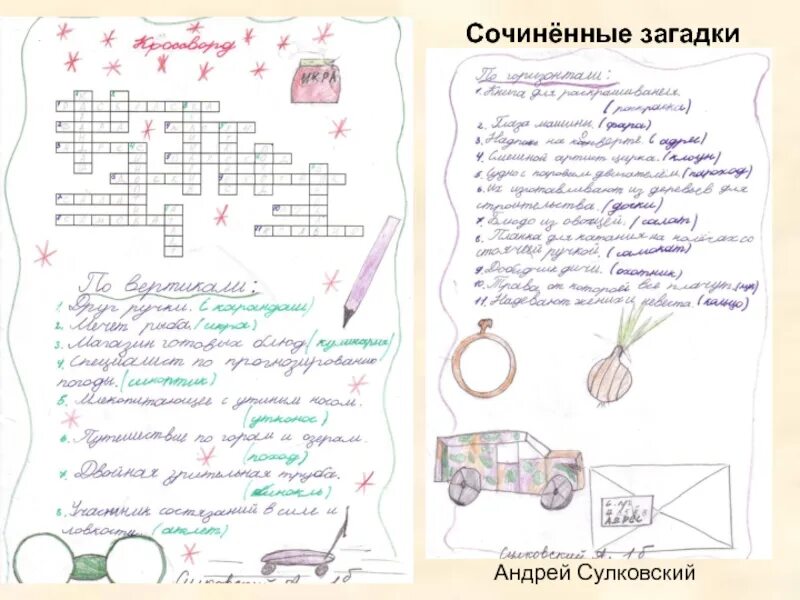 Сочинённые загадки
Кроссворд
ИКРА
По вертикали:
1. Друг ручки. (карандаш)
2. Мечет рыба. (икра)
3. Магазин готовых блюд. (кулинария)
4. Специалист по прогнозированию
погоды. (синоптик)
5. Млекопитающее с утиным носом.
(утконос)
6. Путешествие по горам и озёрам.
(поход)
7. Двойная зрительная труба.
(бинокль)
8. Участник состязаний в силе и
ловкости. (атлет)
Сулковский А. 1б
По горизонтали:
1. Книга для раскрашивания.
(раскраска)
2. Глаза машины. (фара)
3. Надпись на конверте. (адрес)
4. Смешной артист цирка. (клоун)
5. Судно с паровым двигателем. (пароход)
6. Их изготавливают из деревьев для
строительства. (доски)
7. Блюдо из овощей. (салат)
8. Планка для катания на колёсах со
стоячей ручкой. (самокат)
9. Добытчик дичи. (охотник)
10. Трава, от которой все плачут. (лук)
11. Надевают жених и невеста. (кольцо)
АДРЕС
Сулковский А. 1б
Андрей Сулковский